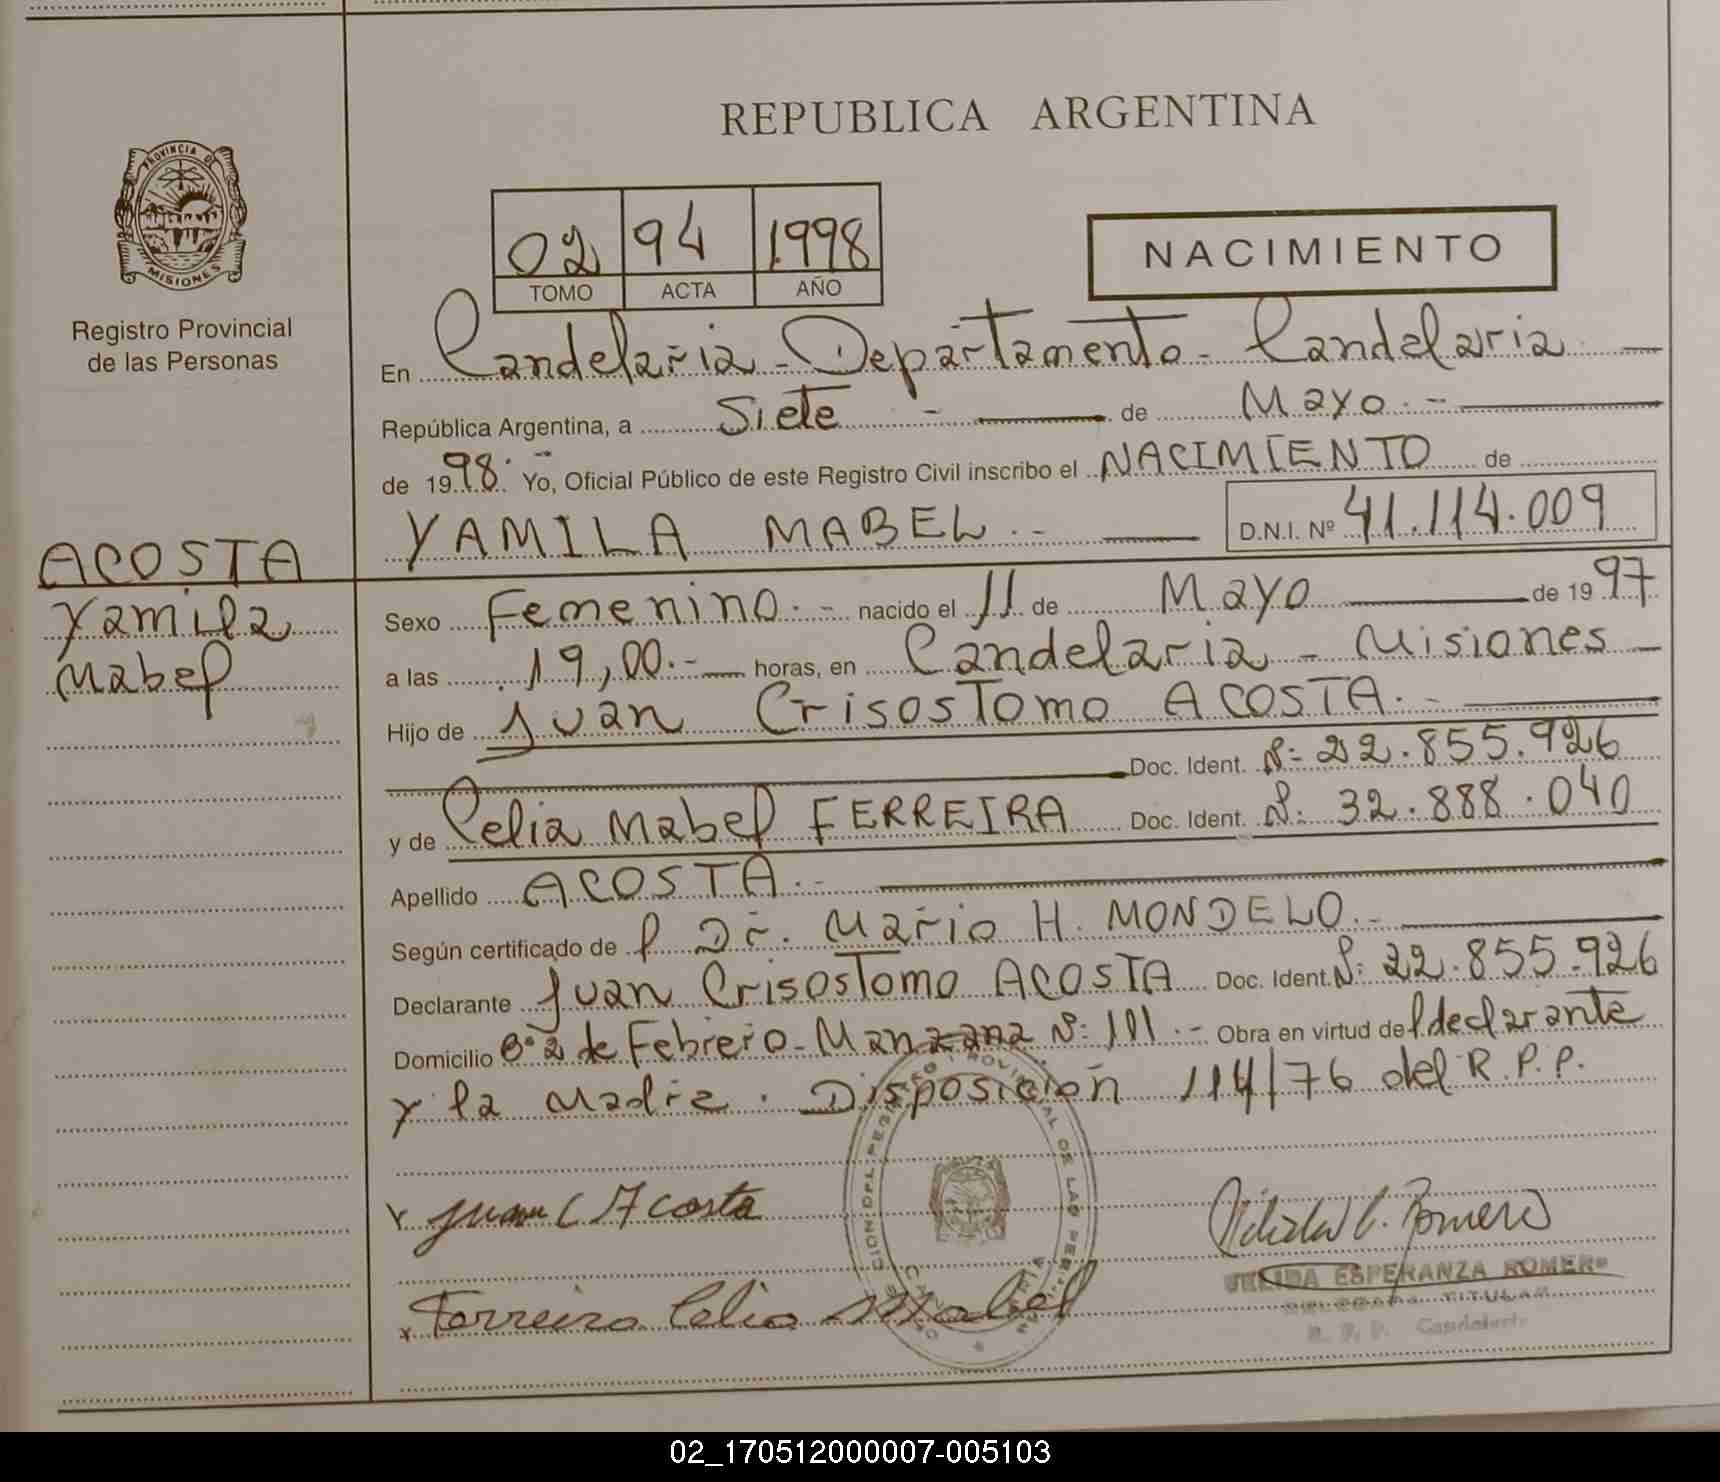 REPUBLICA ARGENTINA
PROVINCIA DE
MISIONES
Registro Provincial
de las Personas
02 94 1998
TOMO ACTA AÑO
NACIMIENTO
En Candelaria - Departamento - Candelaria
República Argentina, a Siete de Mayo
de 1998 Yo, Oficial Público de este Registro Civil inscribo el NACIMIENTO de
YAMILA MABEL D.N.I. Nº 41.114.009
ACOSTA
Yamila
Mabel
Sexo Femenino nacido el 11 de Mayo de 1997
a las 19,00 horas, en Candelaria - Misiones
Hijo de Juan Crisostomo ACOSTA
Doc. Ident. Nº 22.855.926
y de Celia Mabel FERREIRA Doc. Ident. Nº 32.888.040
Apellido ACOSTA
Según certificado de l Dr. Mario H. MONDELO
Declarante Juan Crisostomo ACOSTA Doc. Ident. Nº 22.855.926
Domicilio Bº 2 de Febrero - Manzana Nº 111 Obra en virtud del declarante
y la Madre. Disposición 114/76 del R.P.P.
Juan C Acosta
Ferreira Celia Mabel
ESPERANZA ROMERO
TITULAR
02_170512000007-005103